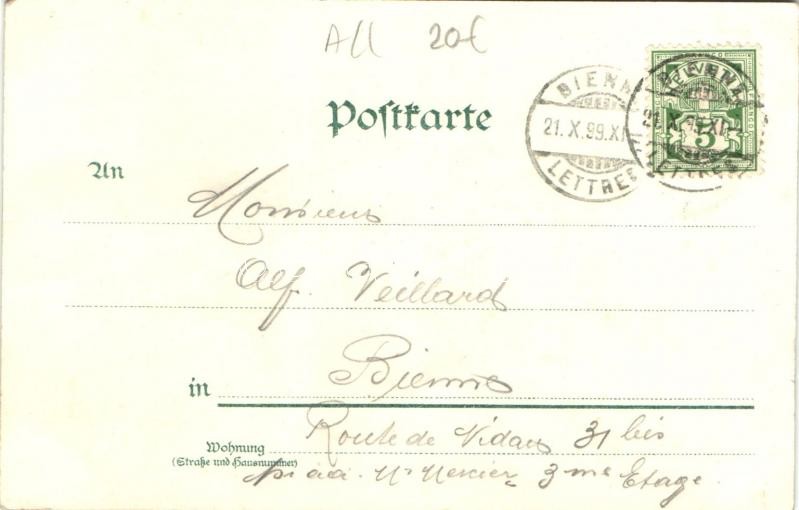 All 20€
Postkarte
BIENNE
21. X. 99. XI
LETTRES
BIENNE
21. X. 99. XI
LETTRES
HELVETIA
5
An
Monsieur
Alf. Veillard
in Bienne
Wohnung
(Straße und Hausnummer)
Route de Nidau 31 bis
Mr Mercier 3me Etage.